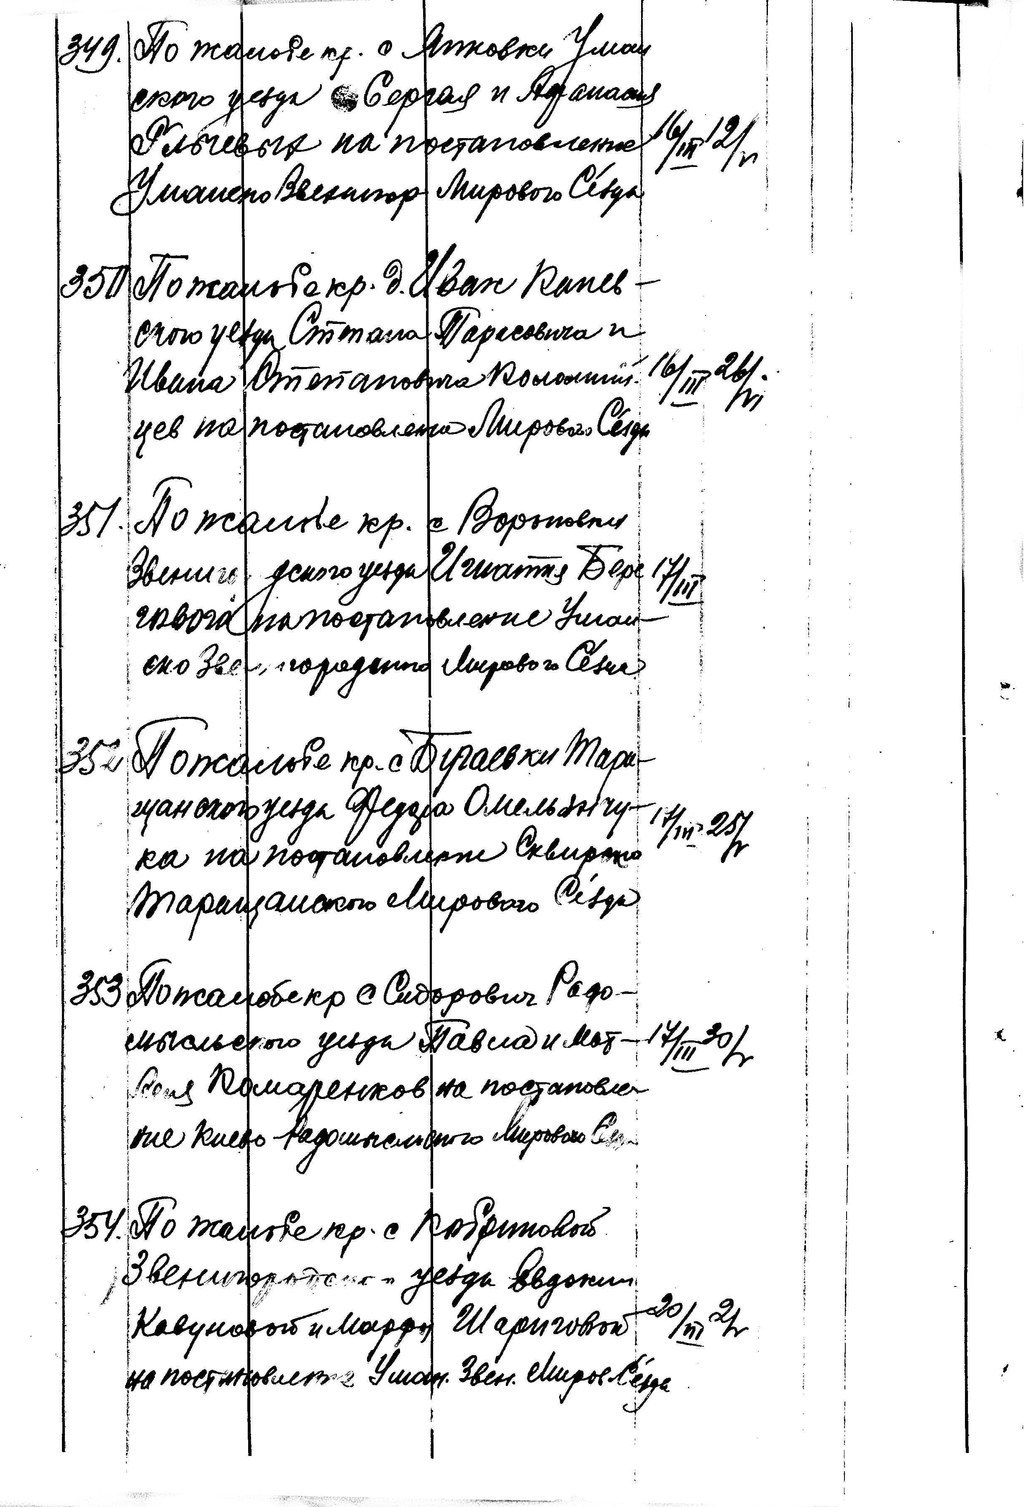 349. По жалобе кр. с Ятковки Уман
ского уезда Сергея и Афанасия
на постановление 16/III 12/V
Уманско Звенигор Мирового Съезда
350 По жалобе кр. д. Иван Канев-
ского уезда Степана Тарасовича и
Ивана Степановича Коломий 16/III 26/VI
цев на постановление Мирового Съезда
351. По жалобе кр. с Вороновки
Звениго дского уезда Игнатия Бере 17/III
гового на постановление Уман-
ско Звенигородского Мирового Съезда
352 По жалобе кр. с Бугаевки Тара-
щанского уезда Федора Омельянчу- 17/III 25/V
ка на постановление Сквирско
Таращанского Мирового Съезда
353 По жалобе кр с Сидорович Радо-
мысльского уезда Павла и Мат- 17/III 30/V
вея Комаренков на постановле
ние Киево-Радомысльского Мирового
354. По жалобе кр. с Кобриновой
Звенигородского уезда Евдокии
Кавуновой и Марфы Шариговой 20/III 2/V
на постановление Уман. Звен. Миров Съезда